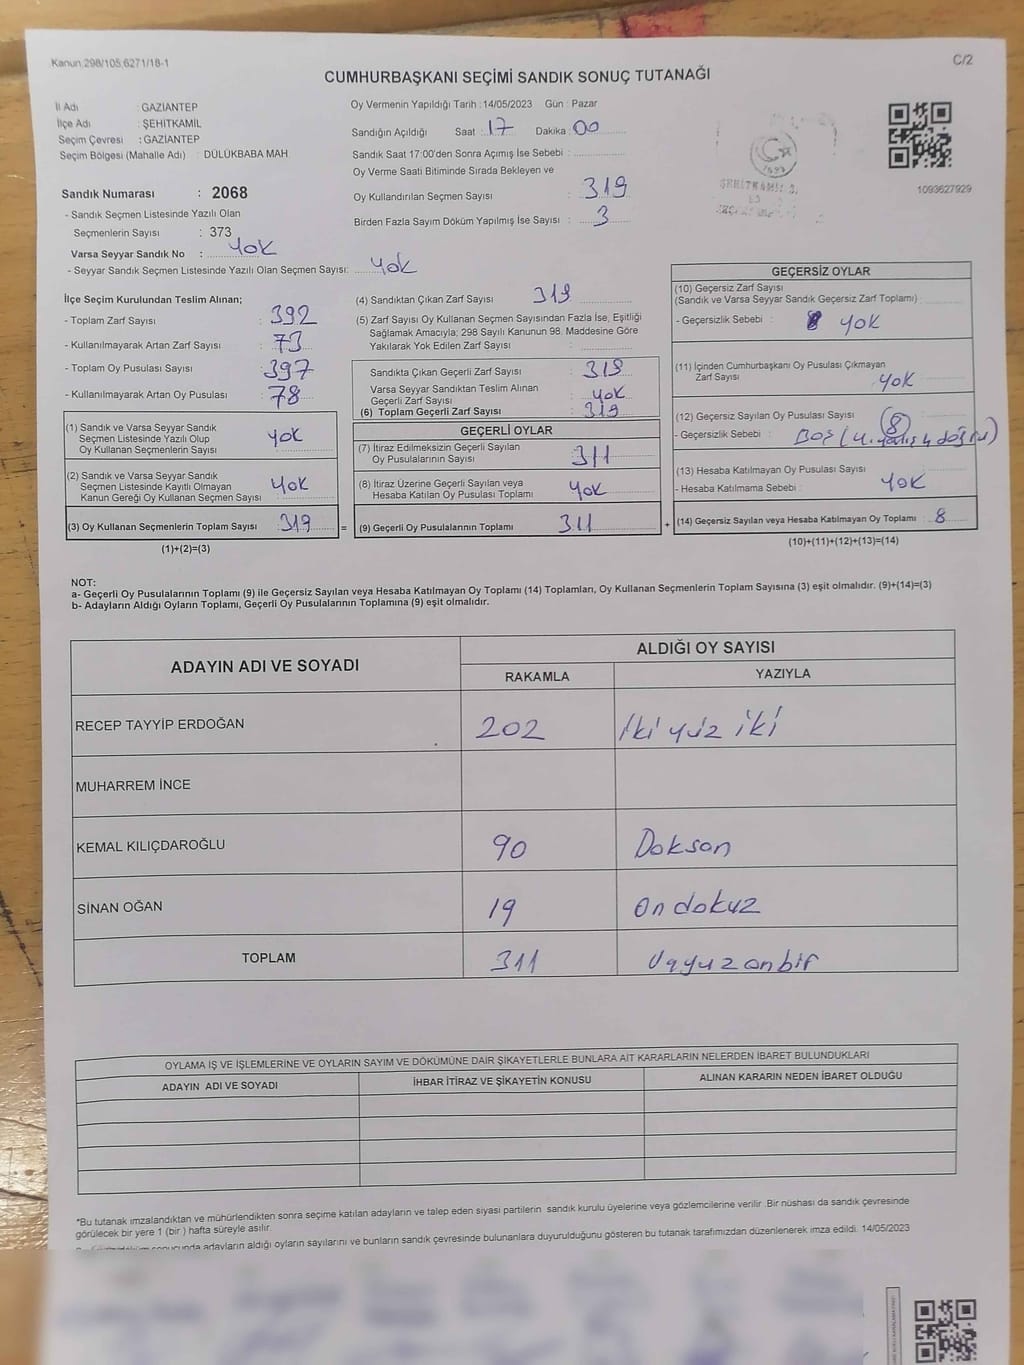 Kanun:298/105,6271/18-1
C/2
CUMHURBAŞKANI SEÇİMİ SANDIK SONUÇ TUTANAĞI
İl Adı : GAZİANTEP
İlçe Adı : ŞEHİTKAMİL
Seçim Çevresi : GAZİANTEP
Seçim Bölgesi (Mahalle Adı) : DÜLÜKBABA MAH.
Sandık Numarası : 2068
- Sandık Seçmen Listesinde Yazılı Olan
Seçmenlerin Sayısı : 373
Varsa Seyyar Sandık No : Yok
- Seyyar Sandık Seçmen Listesinde Yazılı Olan Seçmen Sayısı: Yok
Oy Vermenin Yapıldığı Tarih : 14/05/2023 Gün : Pazar
Sandığın Açıldığı Saat : 17 Dakika : 00
Sandık Saat 17:00'den Sonra Açımış İse Sebebi :
Oy Verme Saati Bitiminde Sırada Bekleyen ve
Oy Kullandırılan Seçmen Sayısı : 319
Birden Fazla Sayım Döküm Yapılmış İse Sayısı : 3
1093627929
İlçe Seçim Kurulundan Teslim Alınan;
- Toplam Zarf Sayısı : 392
- Kullanılmayarak Artan Zarf Sayısı : 73
- Toplam Oy Pusulası Sayısı : 397
- Kullanılmayarak Artan Oy Pusulası : 78
(1) Sandık ve Varsa Seyyar Sandık
Seçmen Listesinde Yazılı Olup
Oy Kullanan Seçmenlerin Sayısı : Yok
(2) Sandık ve Varsa Seyyar Sandık
Seçmen Listesinde Kayıtlı Olmayan
Kanun Gereği Oy Kullanan Seçmen Sayısı : Yok
(3) Oy Kullanan Seçmenlerin Toplam Sayısı : 319
(1)+(2)=(3)
=
(4) Sandıktan Çıkan Zarf Sayısı : 319
(5) Zarf Sayısı Oy Kullanan Seçmen Sayısından Fazla İse, Eşitliği
Sağlamak Amacıyla; 298 Sayılı Kanunun 98. Maddesine Göre
Yakılarak Yok Edilen Zarf Sayısı :
Sandıkta Çıkan Geçerli Zarf Sayısı : 319
Varsa Seyyar Sandıktan Teslim Alınan
Geçerli Zarf Sayısı : Yok
(6) Toplam Geçerli Zarf Sayısı : 319
GEÇERLİ OYLAR
(7) İtiraz Edilmeksizin Geçerli Sayılan
Oy Pusulalarının Sayısı : 311
(8) İtiraz Üzerine Geçerli Sayılan veya
Hesaba Katılan Oy Pusulası Toplamı : Yok
(9) Geçerli Oy Pusulalarının Toplamı : 311
+
GEÇERSİZ OYLAR
(10) Geçersiz Zarf Sayısı :
(Sandık ve Varsa Seyyar Sandık Geçersiz Zarf Toplamı)
- Geçersizlik Sebebi : Yok
(11) İçinden Cumhurbaşkanı Oy Pusulası Çıkmayan
Zarf Sayısı : Yok
(12) Geçersiz Sayılan Oy Pusulası Sayısı : 8
- Geçersizlik Sebebi : Boş
(13) Hesaba Katılmayan Oy Pusulası Sayısı :
- Hesaba Katılmama Sebebi : Yok
(14) Geçersiz Sayılan veya Hesaba Katılmayan Oy Toplamı : 8
(10)+(11)+(12)+(13)=(14)
NOT:
a- Geçerli Oy Pusulalarının Toplamı (9) ile Geçersiz Sayılan veya Hesaba Katılmayan Oy Toplamı (14) Toplamları, Oy Kullanan Seçmenlerin Toplam Sayısına (3) eşit olmalıdır. (9)+(14)=(3)
b- Adayların Aldığı Oyların Toplamı, Geçerli Oy Pusulalarının Toplamına (9) eşit olmalıdır.
ADAYIN ADI VE SOYADI
ALDIĞI OY SAYISI
RAKAMLA YAZIYLA
RECEP TAYYİP ERDOĞAN 202 İki yüz iki
MUHARREM İNCE
KEMAL KILIÇDAROĞLU 90 Doksan
SİNAN OĞAN 19 On dokuz
TOPLAM 311 Üçyüz onbir
OYLAMA İŞ VE İŞLEMLERİNE VE OYLARIN SAYIM VE DÖKÜMÜNE DAİR ŞİKAYETLERLE BUNLARA AİT KARARLARIN NELERDEN İBARET BULUNDUKLARI
ADAYIN ADI VE SOYADI İHBAR İTİRAZ VE ŞİKAYETİN KONUSU ALINAN KARARIN NEDEN İBARET OLDUĞU
*Bu tutanak imzalandıktan ve mühürlendikten sonra seçime katılan adayların ve talep eden siyasi partilerin sandık kurulu üyelerine veya gözlemcilerine verilir .Bir nüshası da sandık çevresinde
görülecek bir yere 1 (bir ) hafta süreyle asılır.
sonucunda adayların aldığı oyların sayılarını ve bunların sandık çevresinde bulunanlara duyurulduğunu gösteren bu tutanak tarafımızdan düzenlenerek imza edildi. 14/05/2023